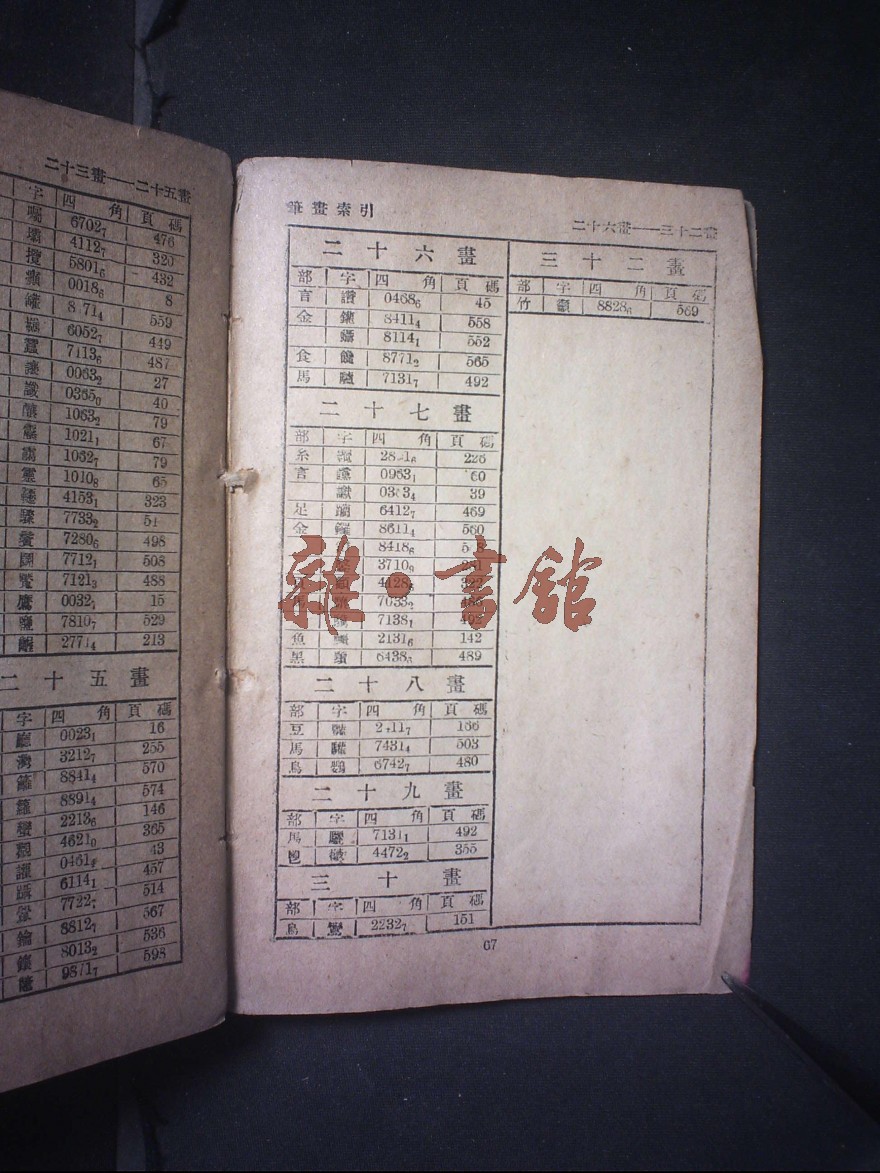 二十三畫——二十五畫
字 四 角 頁 碼
囑 6702₇ 476
壩 4112₇ 320
攬 5801₆ 432
癲 0018₆ 8
罐 559
羈 6052₇ 449
蠶 7113₆ 487
讓 0063₂ 27
讖 0365₀ 40
釀 1063₂ 79
靂 1021₁ 67
靄 1062₇ 79
靈 1010₈ 65
韆 4153₁ 323
驟 7733₂ 51
鬢 7280₆ 498
鬭 7712₁ 508
7121₃ 488
鷹 0032₇ 15
鹽 7810₇ 529
齷 2771₄ 213
二十五畫
字 四 角 頁 碼
廳 0023₁ 16
灣 3212₇ 255
籬 8841₄ 570
籮 8891₄ 574
蠻 2213₆ 146
觀 4621₀ 365
讙 0461₄ 43
躡 6114₁ 457
7722₇ 514
8812₇ 567
鑲 8013₂ 536
9871₇ 598
筆畫索引
二十六畫——三十二畫
二十六畫
部 字 四 角 頁 碼
言 讚 0468₆ 45
金 鑼 8411₄ 558
鑷 8114₁ 552
食 饞 8771₂ 565
馬 驢 7131₇ 492
二十七畫
部 字 四 角 頁 碼
糸 纜 226
言 讜 0963₁ 60
讞 39
足 躪 6412₇ 469
金 鑼 8611₄ 560
8418₆
3710₉
7138₁
魚 鱷 2131₆ 142
黑 6438₆ 489
二十八畫
部 字 四 角 頁 碼
豆 豔 166
馬 驩 7431₄ 503
鳥 鸚 6742₇ 480
二十九畫
部 字 四 角 頁 碼
馬 驪 7131₁ 492
鬯 鬱 4472₂ 355
三十畫
部 字 四 角 頁 碼
鳥 鸞 2232₇ 151
三十二畫
部 字 四 角 頁 碼
竹 籲 8828₆ 569
67
雜·書館